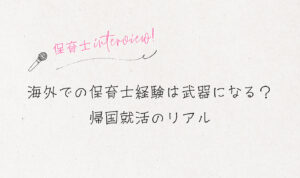 保育士interview!
海外での保育士経験は武器になる？
帰国就活のリアル